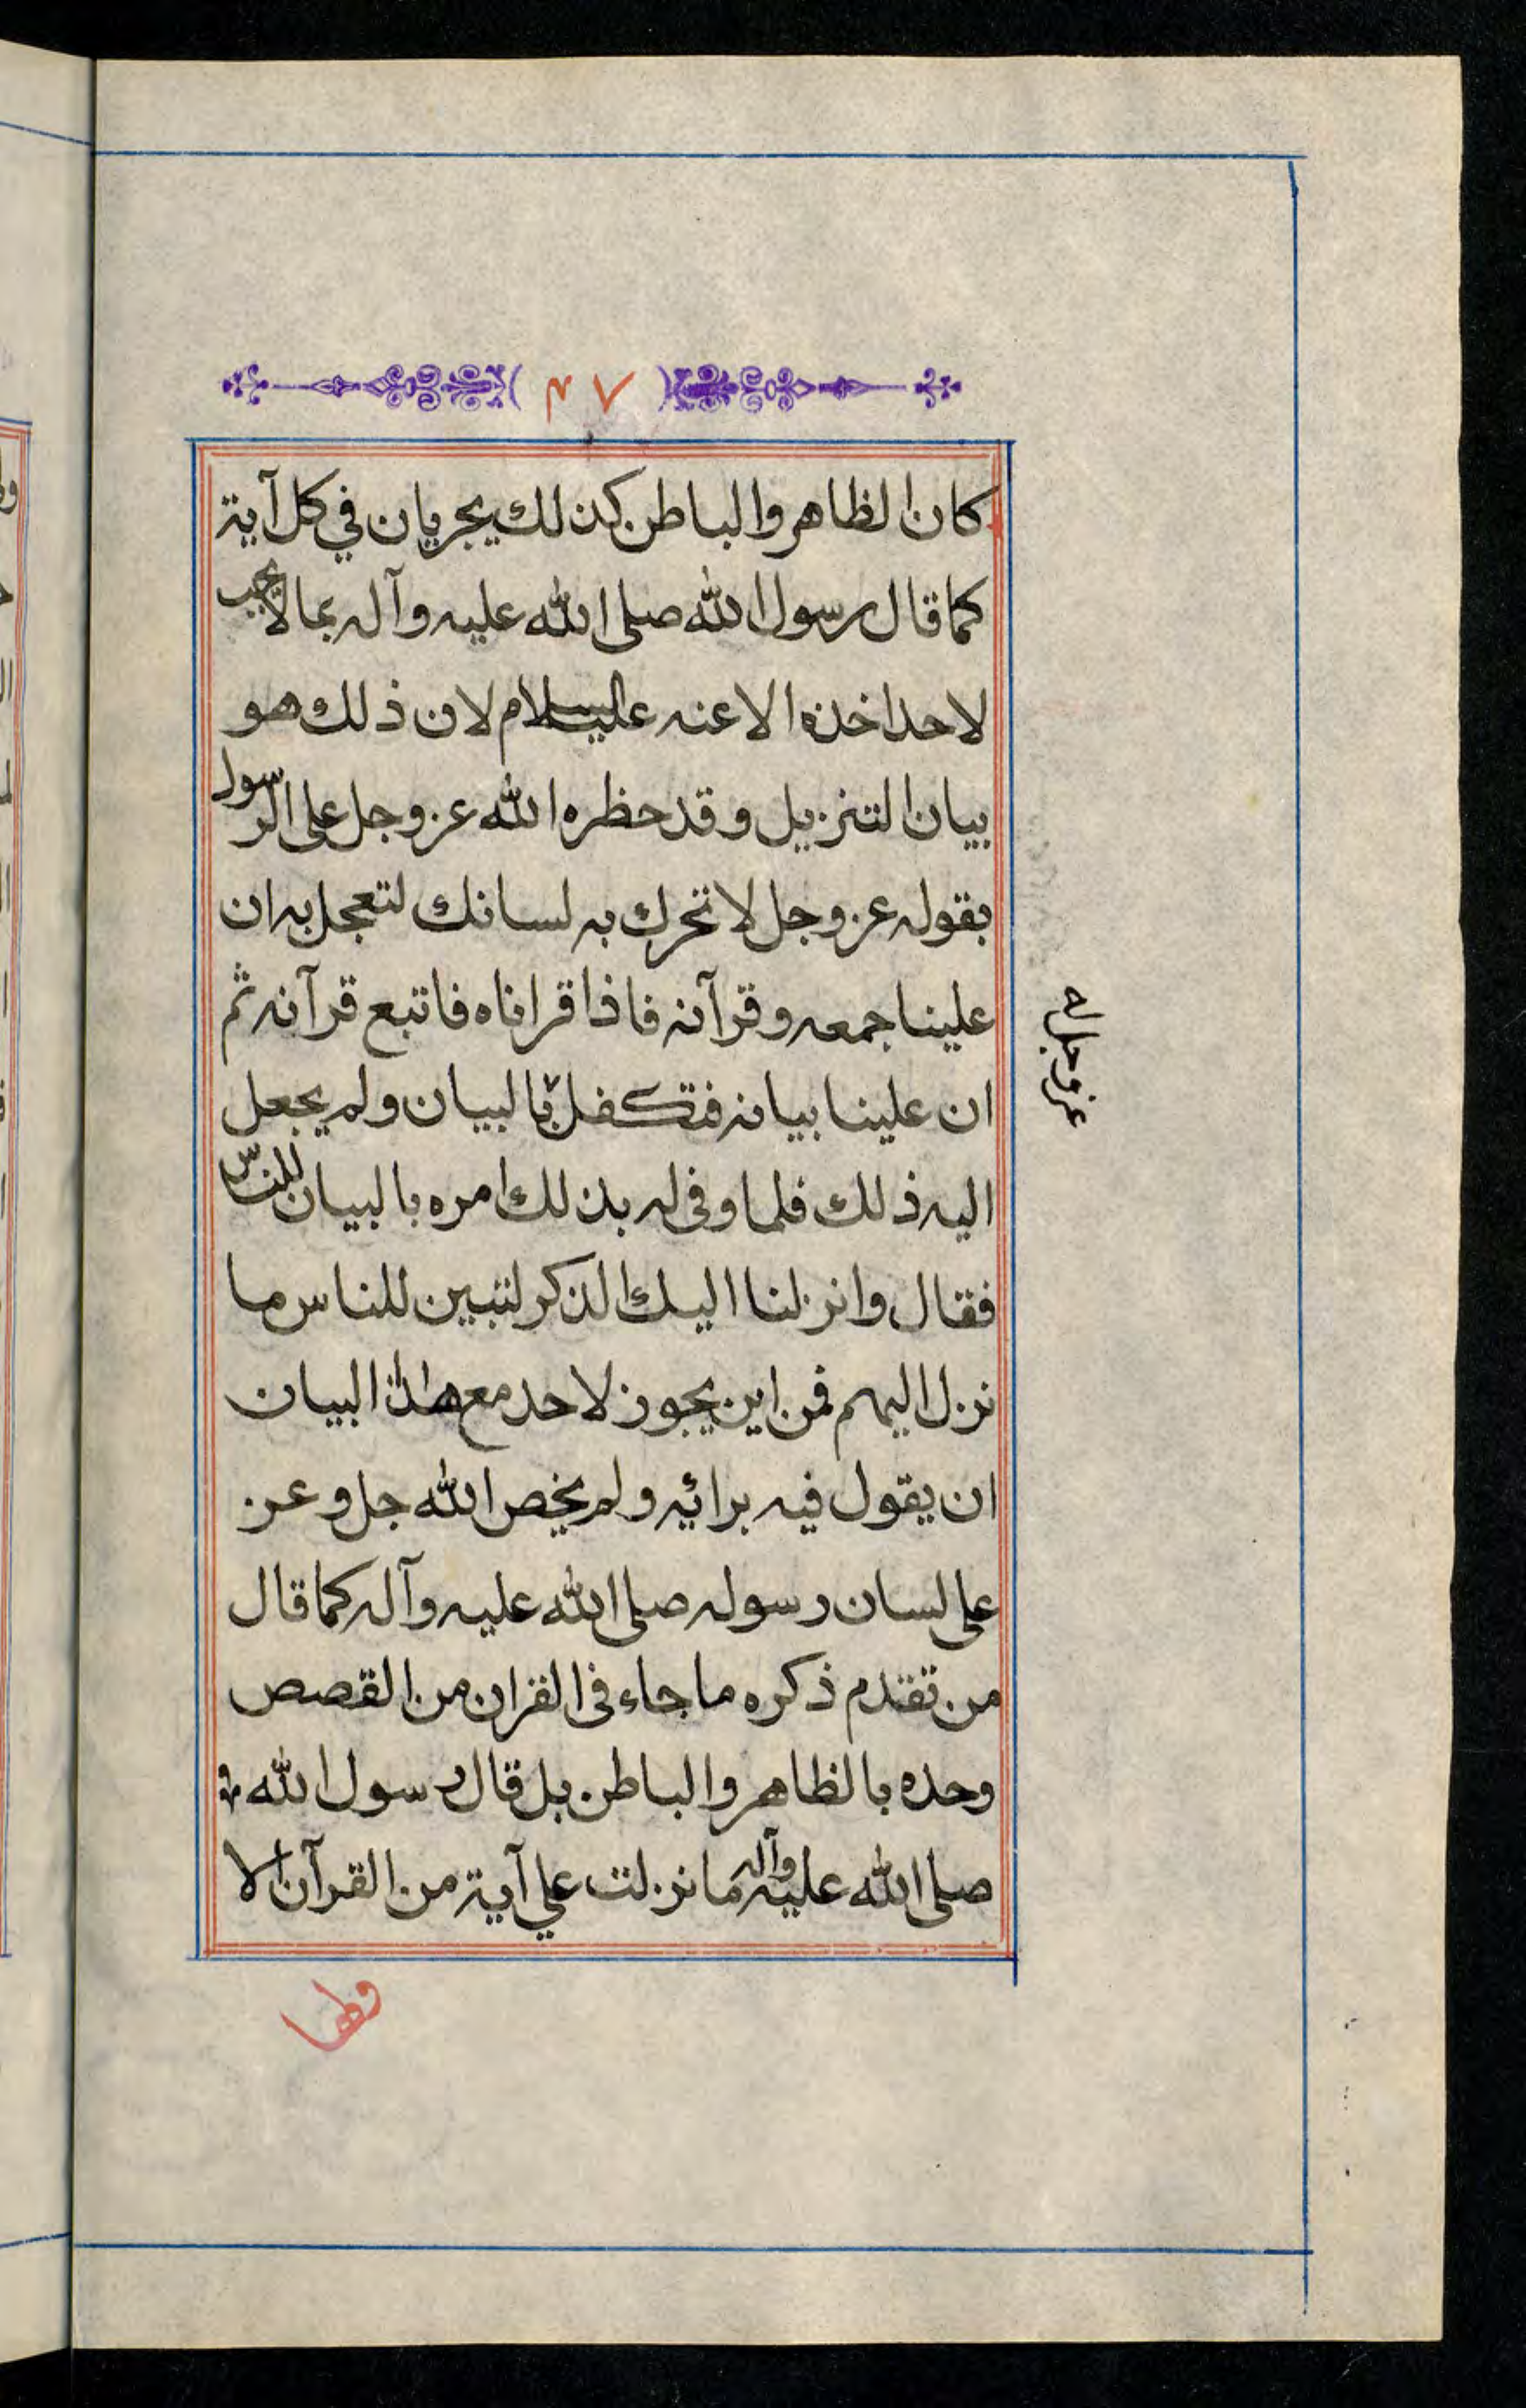 ۷۳
كان الظاهر والباطن كذلك يجريان في كل آية
كما قال رسول الله صلى الله عليه وآله بما لا يجب
لاحد اخذه الا عنه عليه السلام لان ذلك هو
بيان التنزيل وقد حظره الله عز وجل على الرسول
بقوله عز وجل لا تحرك به لسانك لتعجل به ان
علينا جمعه وقرآنه فاذا قراناه فاتبع قرآنه ثم
ان علينا بيانه فتكفل بالبيان ولم يجعل
اليه ذلك فلما وفى له بذلك امره بالبيان للناس
فقال وانزلنا اليك الذكر لتبين للناس ما
نزل اليهم فمن اين يجوز لاحد مع هذا البيان
ان يقول فيه برائيه ولم يخص الله جل وعز
على لسان رسوله صلى الله عليه وآله كما قال
من تقدم ذكره ما جاء فى القران من القصص
وحده بالظاهر والباطن بل قال رسول الله
صلى الله عليه وآله ما نزلت علي آية من القرآن الا
عز وجل له
ولها